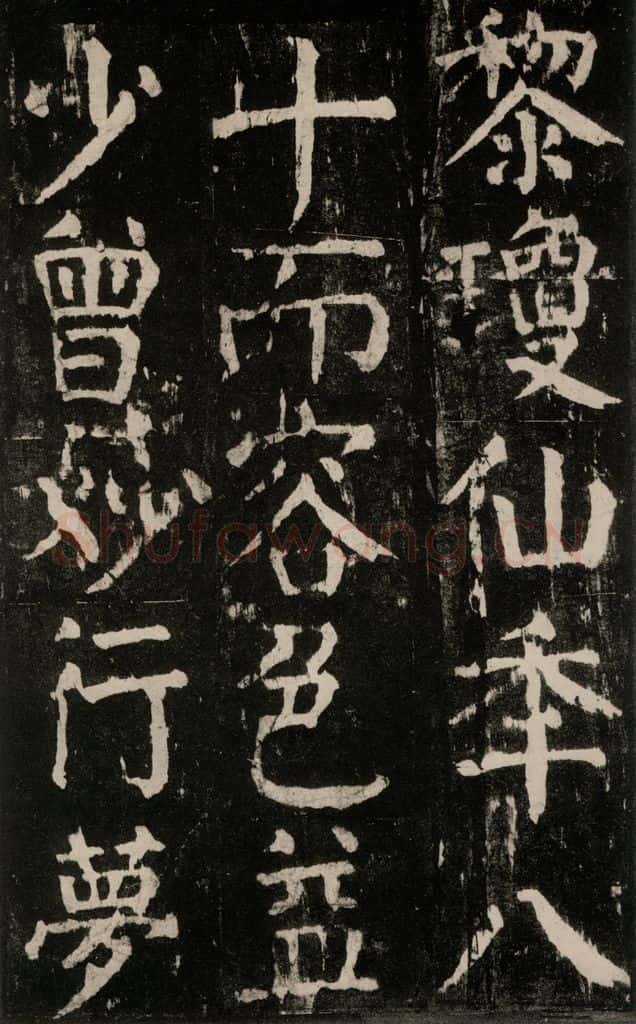 黎瓊仙秊八
十而容色益
少曾妙行夢
Shufawang.CN